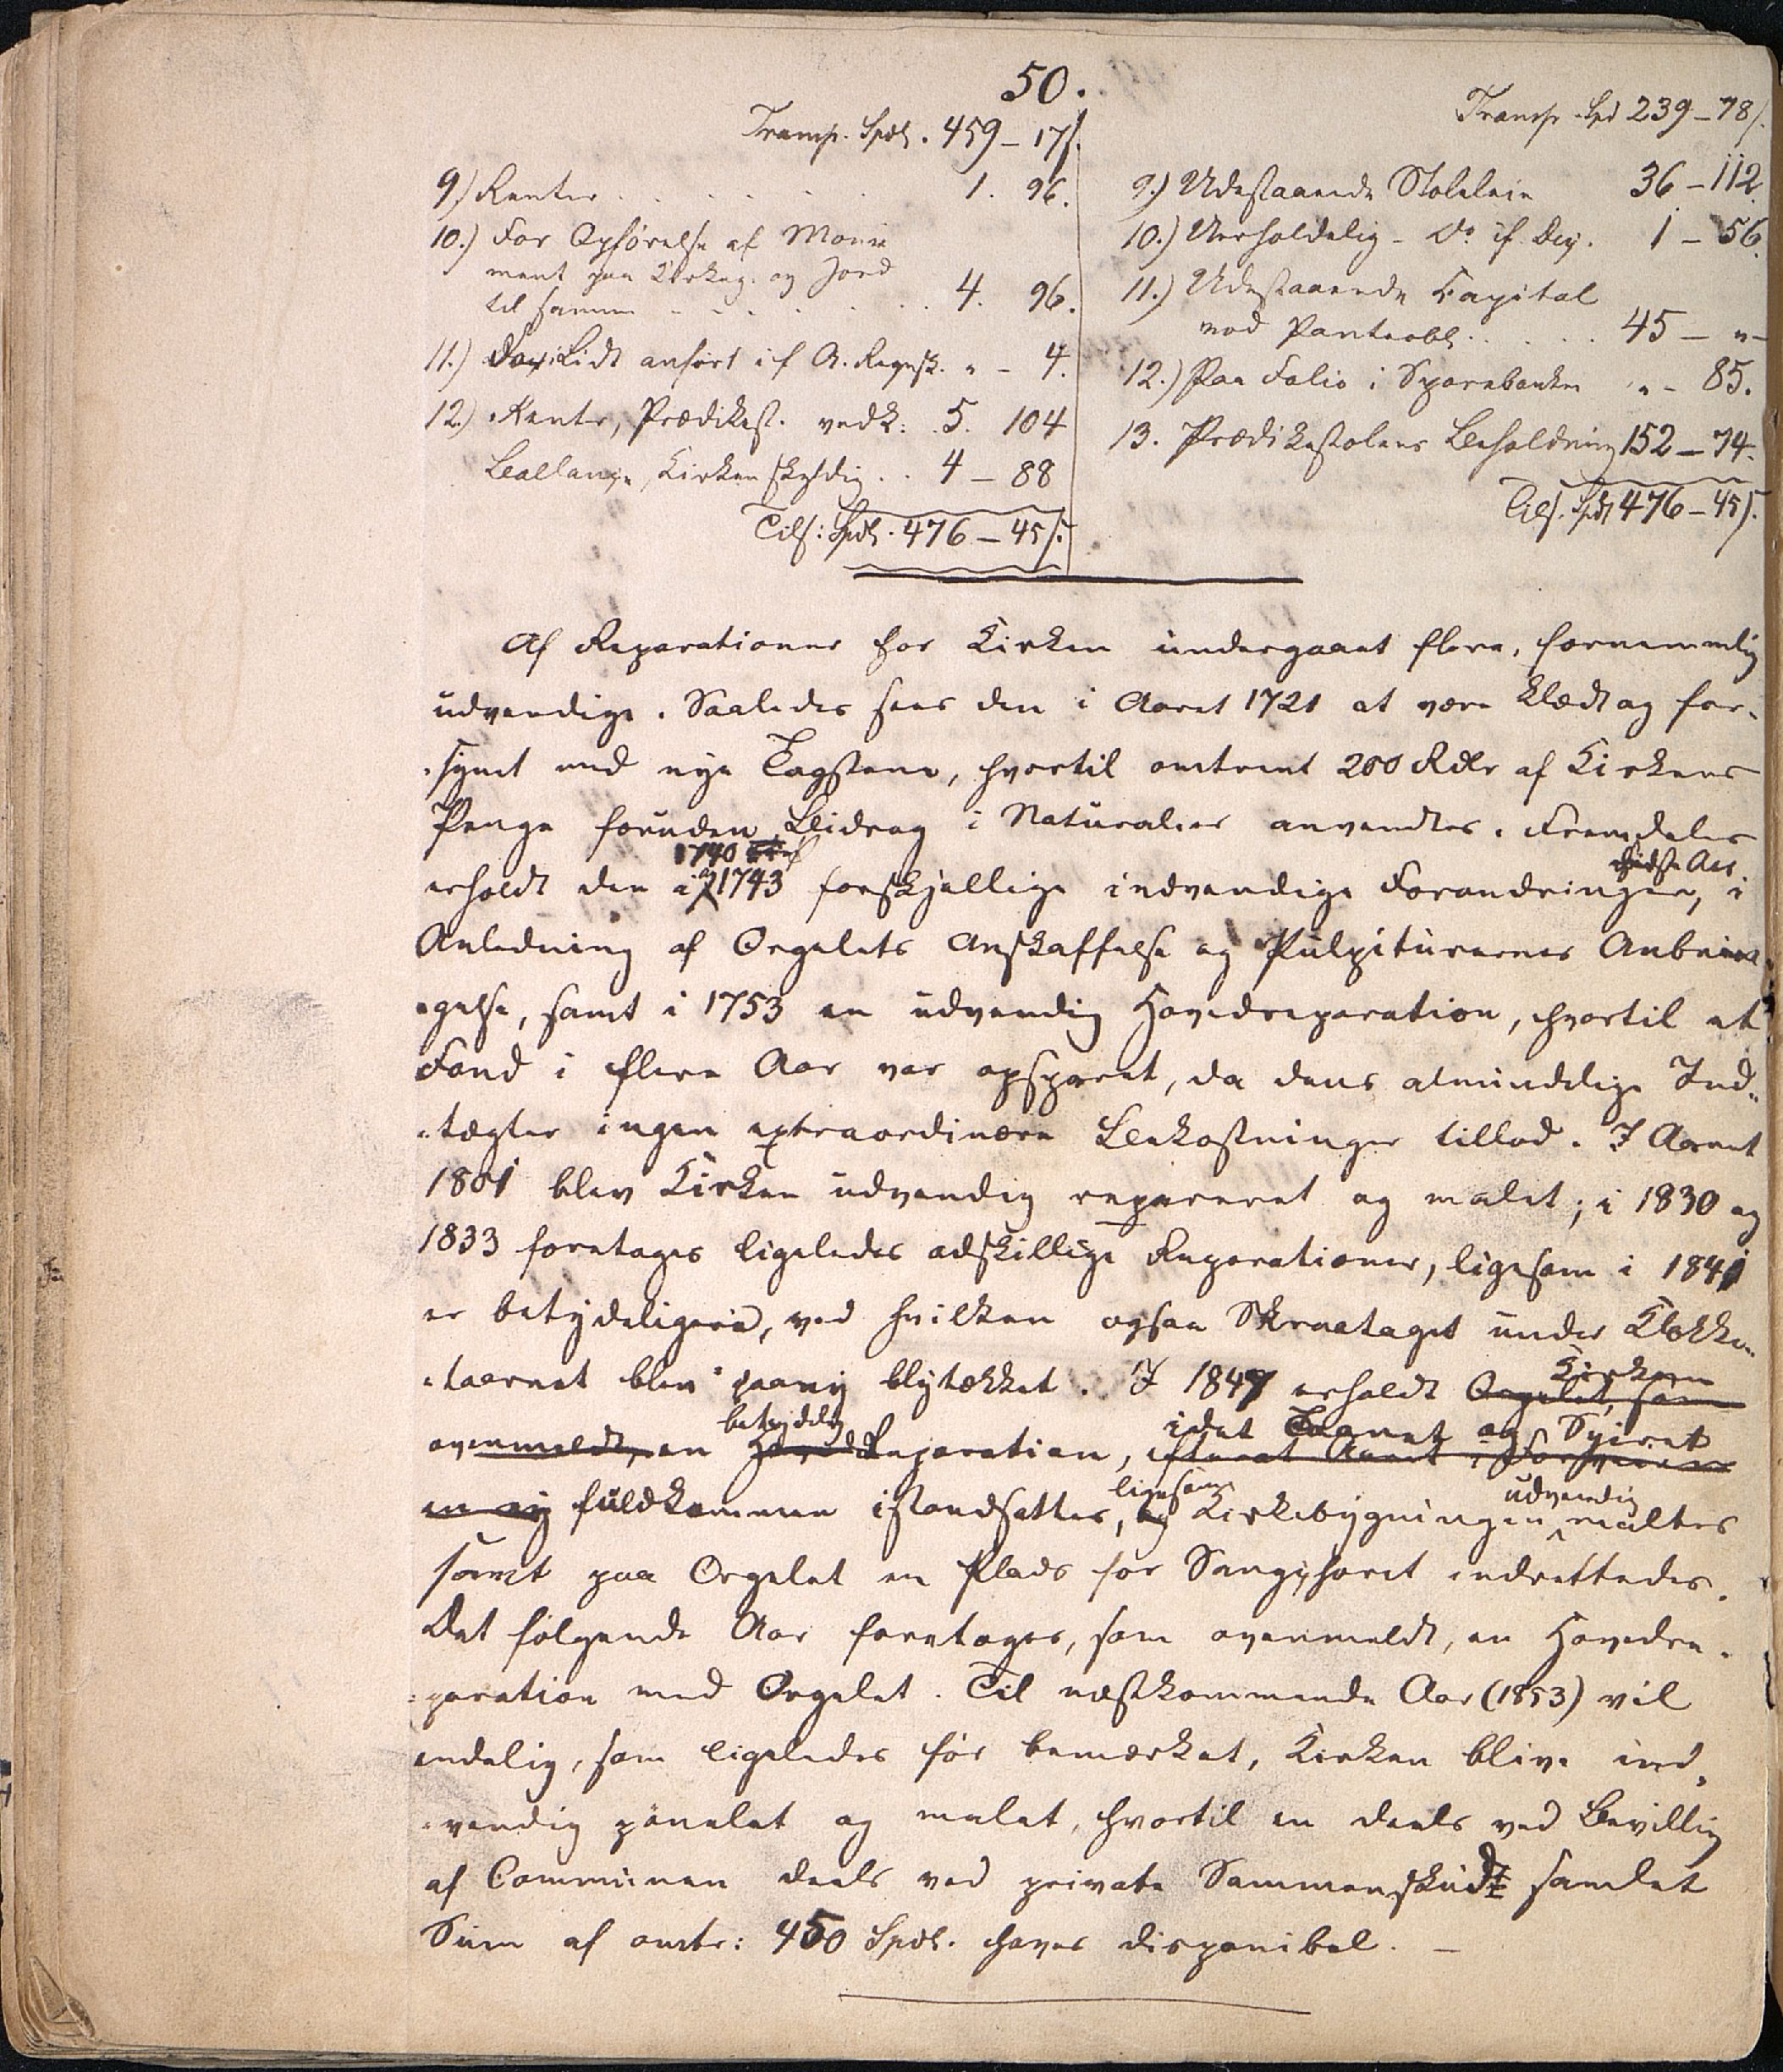 50.
Transp. Spdl. 459 – 17 s.
9.) Renter . . . . . . 1. 96.
10.) For Opførelse af Monu
ment paa Kirkeg. og Jord
til samme . . . . . . 4. 96.
11.) For Lidt anført if A. Regnsk. " – 4.
12.) Renter, Prædikest. vedk: 5. 104
Ballance, Kirken skyldig . . 4 – 88
Tils: Spdl. 476 – 45 s.
Transp. Spd 239 – 78 s.
9.) Udestaaende Stoleleie 36 – 112.
10.) Uerholdelig – Do if. Dec. 1 – 56.
11.) Udestaaende Kapital
mod Panteobl. . . . . 45 – " –
12.) Paa Folio i Sparebanken " – 85.
13. Prædikestolens Beholdning 152 – 74.
Tils. Spdl 476 – 45 s.
Af Reparationer har Kirken undergaaet flere, fornemmelig
udvendige. Saaledes sees den i Aaret 1721 at være klædt og for-
synet med nye Tagstene, hvortil omtrent 200 Rdlr af Kirkens
Penge foruden Bidrag i Naturalier anvendtes. Fremdeles
1740 sidste Aar
erholdt den i og 1743 forskjellige indvendige Forandringer, i
Anledning af Orgelets Anskaffelse og Pulpiturernes Anbrin-
gelse, samt i 1753 en udvendig Hovedreparation, hvortil et
Fond i flere Aar var opsparet, da dens almindelige Ind-
tægter ingen extraordinære Bekostninger tillod. I Aaret
1801 blev Kirken udvendig repareret og malet; i 1830 og
1833 foretoges ligeledes adskillige Reparationer, ligesom i 1841
er betydeligere, ved hvilken ogsaa Skraataget under Klokke-
taarnet blev paany blytækket. I 1847 erholdt Orgelet, som
Kirken
betydelig idet Taarnet og Spiret
ovenmeldt, en Hoved Reparation, efterat Aaret i Forveien
ligesom udvendig
en ny fuldkommen istandsattes, og Kirkebygningen maltes
samt paa Orgelet en Plads for Sangchoret indrettedes.
Det følgende Aar foretoges, som ovenmeldt, en Hovedre-
paration med Orgelet. Til næstkommende Aar (1853) vil
endelig, som ligeledes før bemærket, Kirken blive ind-
vendig panelet og malet, hvortil en deels ved Bevilling
af Communen deels ved private Sammenskudt samlet
Sum af omtr: 450 Spdl. haves disponibel. –